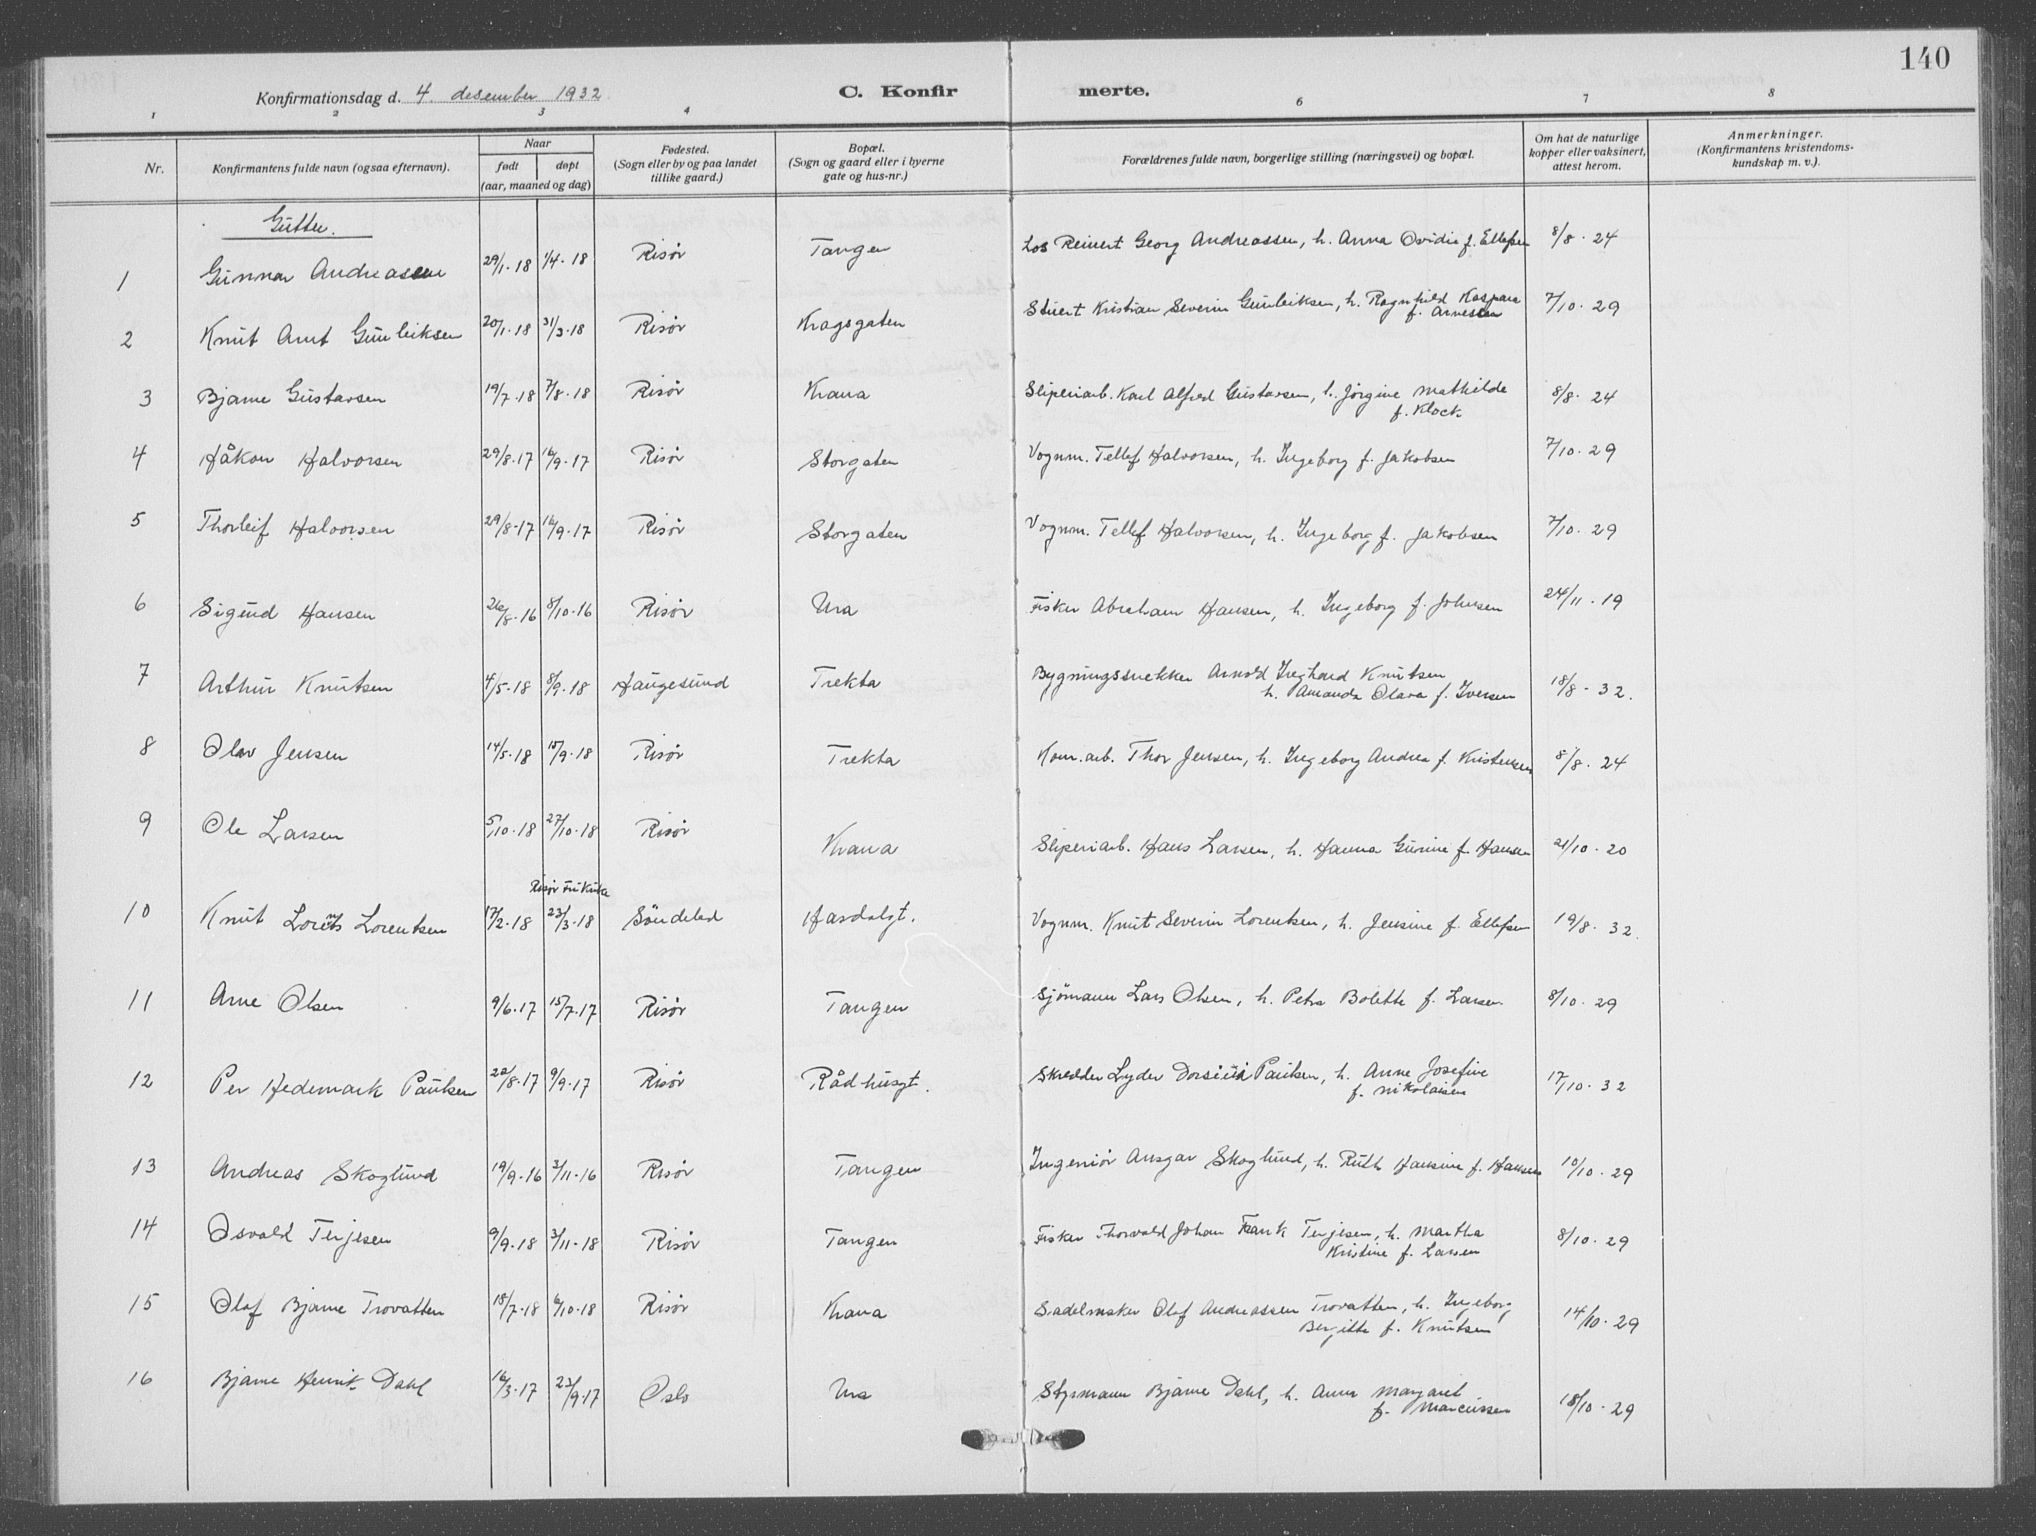 140
Konfirmationsdag d. 4. desember 1932
C. Konfir merte.
1 2 3 4 6 7 8
Nr.
Konfirmantens fulde navn (ogsaa efternavn).
Naar
født døpt
(aar, maaned og dag)
Fødested.
(Sogn eller by og paa landet
tillike gaard.)
Bopæl.
(Sogn og gaard eller i byerne
gate og hus-nr.)
Forældrenes fulde navn, borgerlige stilling (næringsvei) og bopæl.
Om hat de naturlige
kopper eller vaksinert,
attest herom.
Anmerkninger.
(Konfirmantens kristendoms-
kundskap m. v.).
Gutter.
1 Gunnar Andreassen 29/1.18 1/4.18 Risør Tangen Los Reinert Georg Andreassen, h. Anna Ovidia f. Ellefsen 8/8.24
2 Knut Arnt Gunleiksen 20/1.18 31/3.18 Risør Kragsgaten Stuert Kristian Severin Gunleiksen, h. Ragnhild Kaspara
f. Arnesen 7/10.29
3 Bjarne Gustavsen 19/7.18 7/8.18 Risør Krana Sliperiarb. Karl Alfred Gustavsen, h. Jørgine Mathilde
f. Klock 8/8.24
4 Håkon Halvorsen 29/8.17 16/9.17 Risør Storgaten Vognm. Tellef Halvorsen, h. Ingeborg f. Jakobsen 7/10.29
5 Thorleif Halvorsen 29/8.17 16/9.17 Risør Storgaten Vognm. Tellef Halvorsen, h. Ingeborg f. Jakobsen 7/10.29
6 Sigurd Hansen 26/8.16 8/10.16 Risør Ura Fisker Abraham Hansen, h. Ingeborg f. Johnsen 24/11.19
7 Arthur Knutsen 4/5.18 8/9.18 Haugesund Trekta Bygningssnekker Arnold Knutsen
h. Amanda Olava f. Iversen 18/8.32.
8 Olav Jensen 14/5.18 15/9.18 Risør Trekta Kom.arb. Thor Jensen, h. Ingeborg Andrea f. Kristensen 8/8.24
9 Ole Larsen 5/10.18 27/10.18 Risør Krana Sliperiarb. Hans Larsen, h. Hanna Gurine f. Hansen 21/10.20
Risør Frikirke
10 Knut Lorents Lorentsen 17/2.18 23/3.18 Söndeled Hasdalgt. Vognm. Knut Severin Lorentsen, h. Jensine f. Ellefsen 19/8.32.
11 Arne Olsen 9/6.17 15/7.17 Risør Tangen Sjömann Lars Olsen, h. Petra Bolette f. Larsen 8/10.29
12 Per Hedemark Paulsen 22/8.17 9/9.17 Risør Rådhusgt. Skredder Lyder Paulsen, h. Anne Josefine
f. Nikolaisen 17/10.32
13 Andreas Skoglund 19/9.16 3/11.16 Risør Tangen Ingeniør Ansgar Skoglund, h. Ruth Hansine f. Hansen 10/10.29
14 Osvald Terjesen 9/9.18 3/11.18 Risør Tangen Fisker Thorvald Johan Frank Terjesen, h. Martha
Kristine f. Larsen 8/10.29
15 Olaf Bjarne Trovatten 18/7.18 6/10.18 Risør Krana Sadelmaker Olaf Andreassen Trovatten, h. Ingeborg
Bergitte f. Knutsen 14/10.29
16 Bjarne Henrik Dahl 16/3.17 23/9.17 Oslo Ura Styrmann Bjarne Dahl, h. Anna Margaret
f. Marcussen 18/10.29